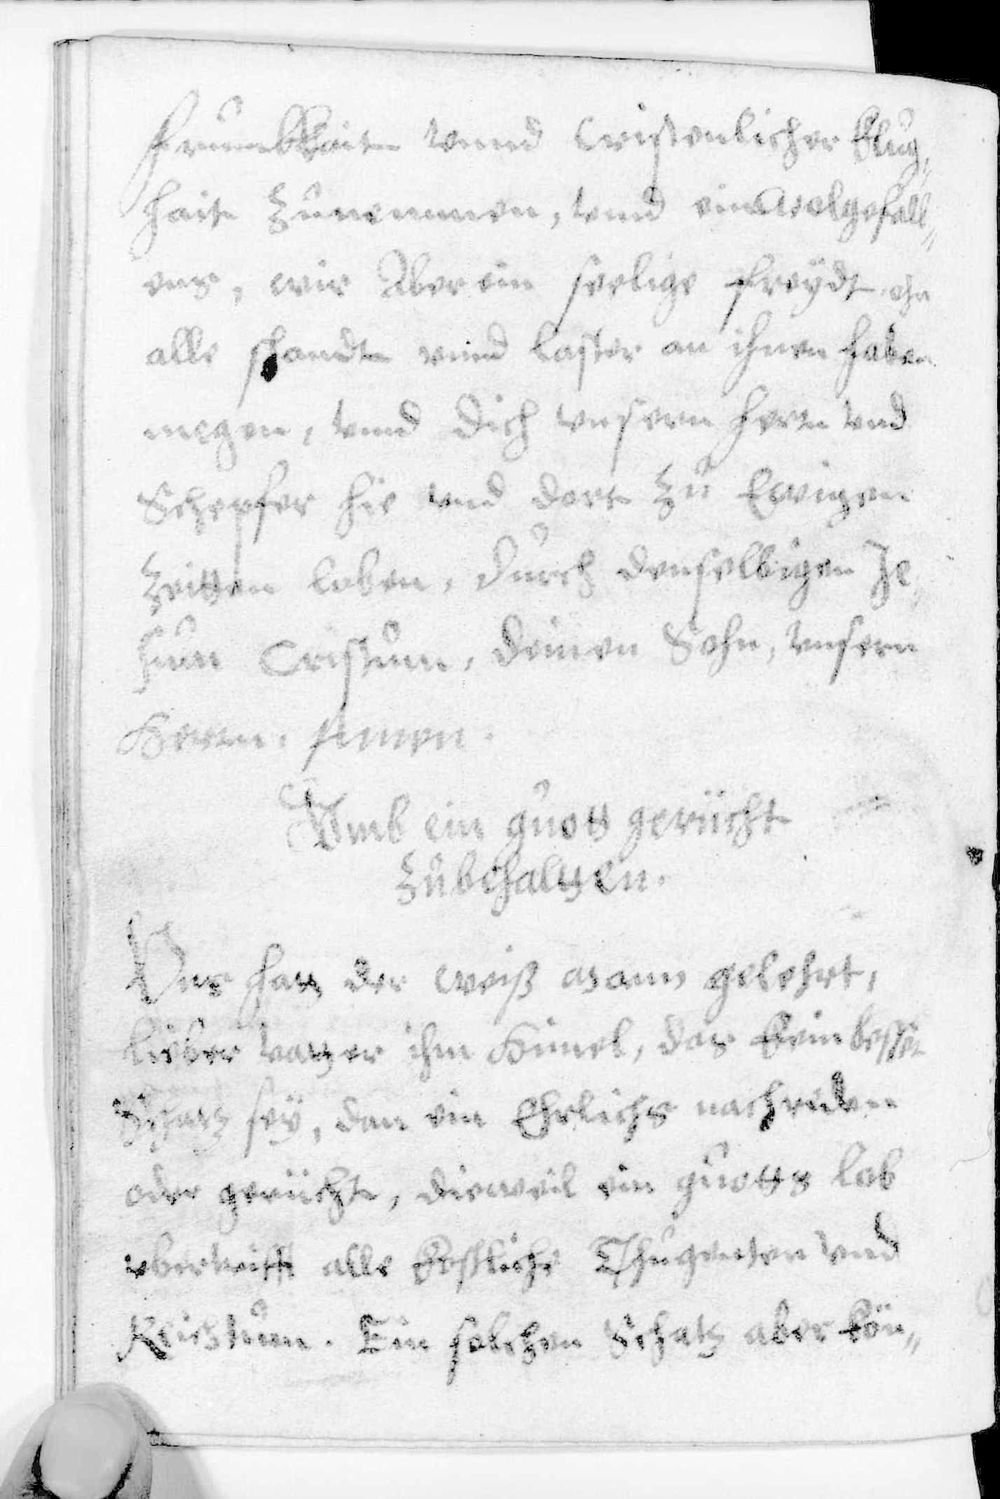 frumbkhait vnnd Cristenlicher klug„
hait zunemmen, vnnd ein wolgefall„
ens, wir Aber ein seelige freydt ohn
alle schandt vnnd laster an ihnen haben
megen, vnnd dich vnsern Herrn vnd
Schepfer hie vnd dort zu Ewigen
zeitten loben, durch denselbigen Je„
sum Cristum, deinen Sohn, vnsern
Herrn. Amen.
Vmb ein guott gerücht
zubehaltten.
Vns hatt der weiß Mann gelehrt,
lieber vatter ihm Himel, das kein besser
Schatz sey, dan ein Ehrlichs nachreden
oder gerücht, dieweil ein guotts lob
vbertrifft alle kostliche Thugenten vnd
Reichtum. Ein solchen Schatz aber kön„